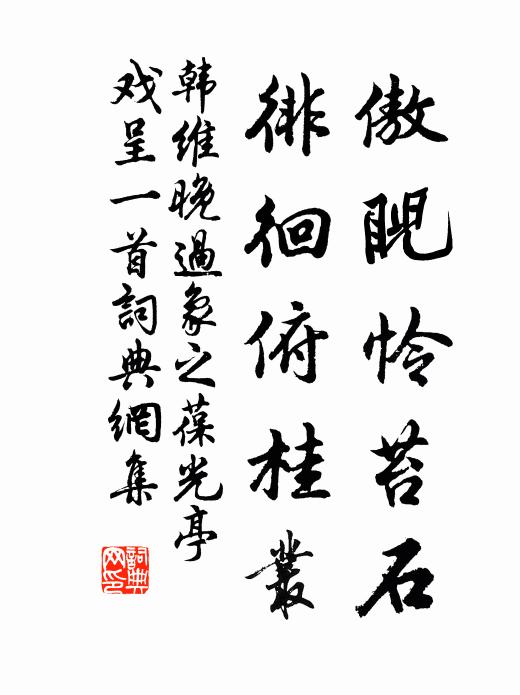 傲睨怜苔石
徘徊俯桂叢
韩维晚過象之葆光亭
戏呈一首詞典網集
詞典网印